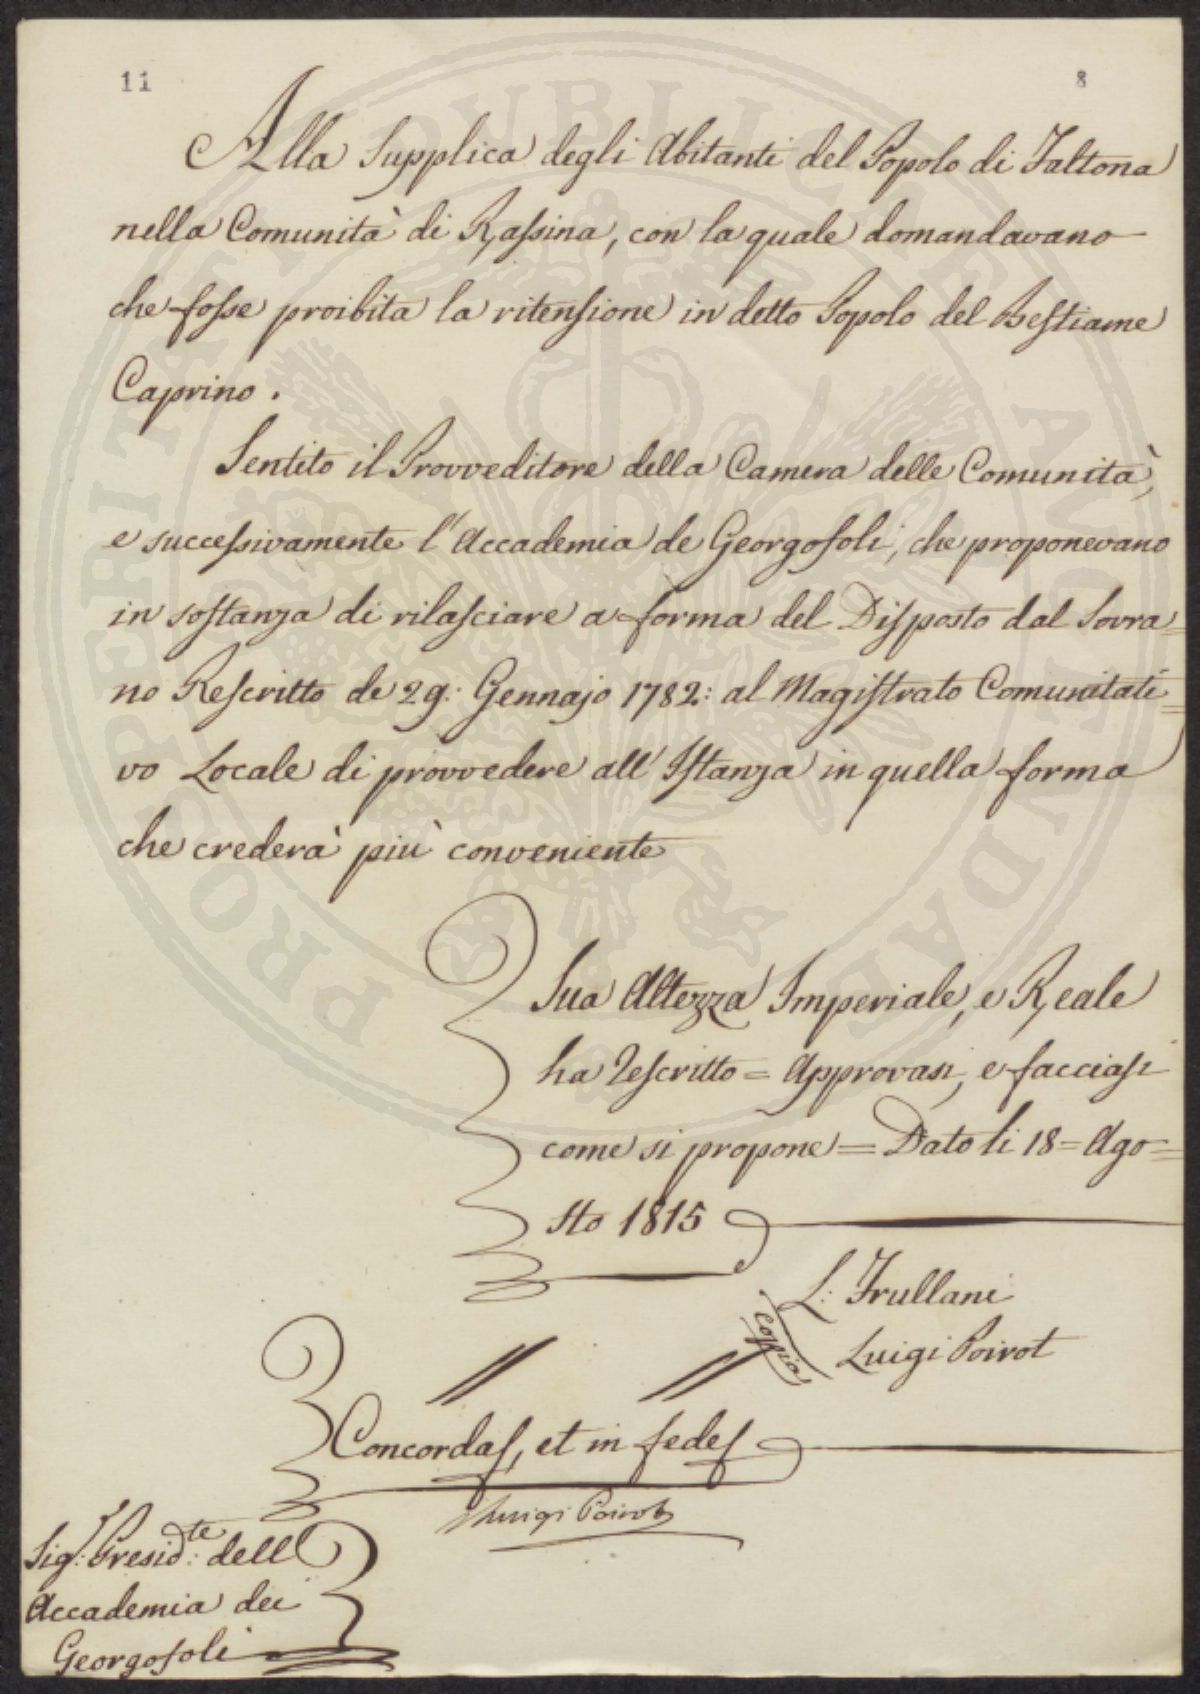 11 8
Alla Supplica degli Abitanti del Popolo di Faltona
nella Comunità di Rassina, con la quale domandavano
che fosse proibita la ritensione in detto Popolo del Bestiame
Caprino.
Sentito il Provveditore della Camera delle Comunità,
e successivamente l'Accademia de Georgofoli, che proponevano
in sostanza di rilasciare a forma del Disposto dal Sovra=
no Rescritto de 29: Gennajo 1782: al Magistrato Comunitati=
vo Locale di provvedere all'Istanza in quella forma
che crederà più conveniente
Sua Altezza Imperiale, e Reale
ha Rescritto = Approvasi, e facciasi
come si propone = Dato li 18 = Ago=
sto 1815
L: Frullani
copia
Luigi Poirot
Concordas, et in fedes
Luigi Poirot
Sig: Presid:te dell
Accademia dei
Georgofoli
PROSPERITATI PUBLICAE AUGENDAE